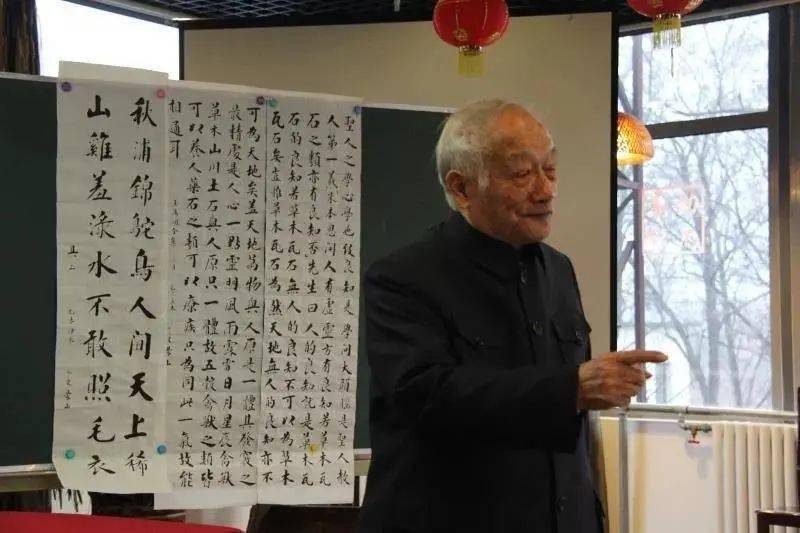 聖人之學心學也致良知是學問大頭腦是聖人教
人第一義朱本思問人有虛靈方有良知若草木瓦
石之類亦有良知否先生曰人的良知就是草木瓦
石的良知若草木瓦石無人的良知不可以為草木
瓦石矣豈惟草木瓦石為然天地無人的良知亦不
可為天地矣蓋天地萬物與人原是一體其發竅之
最精處是人心一點靈明風雨露雷日月星辰禽獸
草木山川土石與人原只一體故五穀禽獸之類皆
可以養人藥石之類可以療疾只為同此一氣故能
相通耳
秋浦錦鴕鳥人間天上稀
山雞羞淥水不敢照毛衣
其二